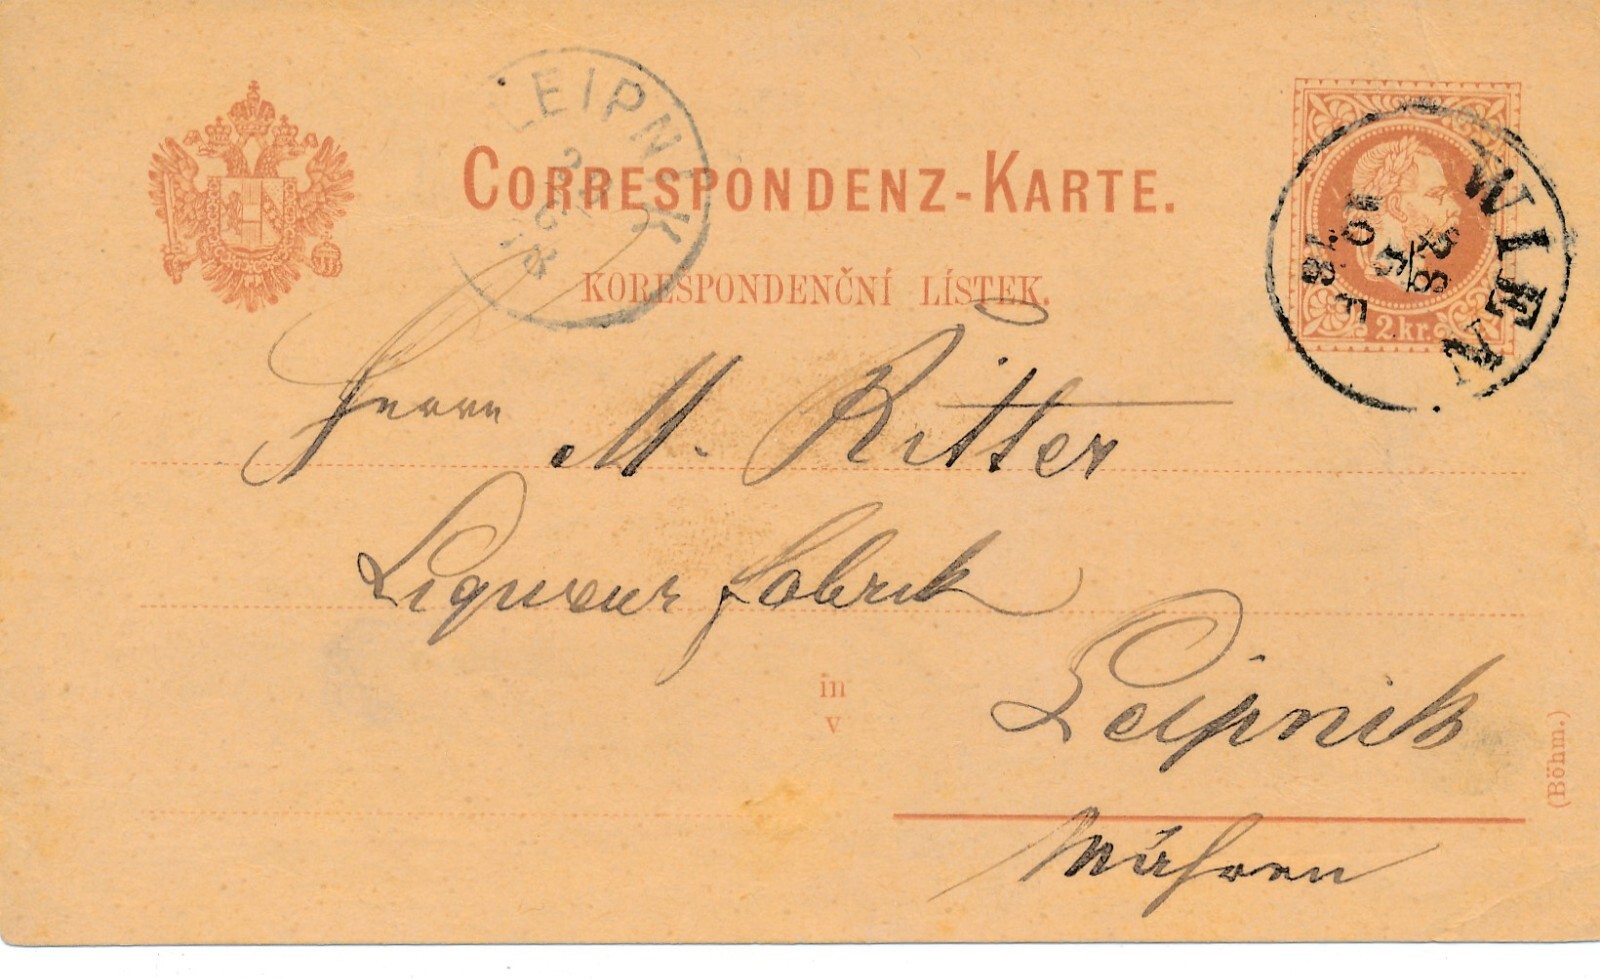 LEIPNIK
CORRESPONDENZ-KARTE.
KORESPONDENČNÍ LÍSTEK.
WIEN
28
5
78
2 kr.
Herrn M. Ritter
Liqueur fabrik
in
v
Leipnik
Mähren
(Böhm.)